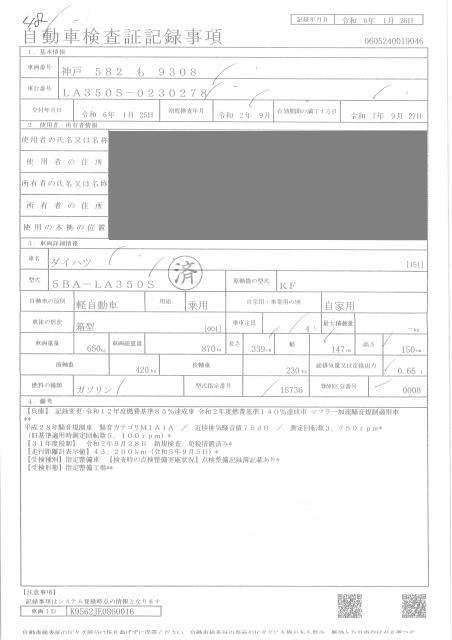 記録年月日 令和 6年 1月 25日
自動車検査証記録事項
0605240019046
1. 基本情報
車両番号 神戸 582 も 9308
車台番号 LA350S-0230278
交付年月日 令和 6年 1月 25日 初度検査年月 令和 2年 9月 有効期間の満了する日 令和 7年 9月 27日
2. 使用者・所有者情報
使用者の氏名又は名称
使用者の住所
所有者の氏名又は名称
所有者の住所
使用の本拠の位置
3. 車両詳細情報
車名 ダイハツ [151]
済
型式 5BA-LA350S 原動機の型式 KF
自動車の種別 軽自動車 用途 乗用 自家用・事業用の別 自家用
車体の形状 箱型 [001] 乗車定員 4人 最大積載量 -kg
車両重量 650kg 車両総重量 870kg 長さ 339cm 幅 147cm 高さ 150cm
前軸重 420kg 後軸重 230kg 総排気量又は定格出力 0.65 L
燃料の種類 ガソリン 型式指定番号 18736 類別区分番号 0008
4. 備考
【兵庫】 記録変更 令和12年度燃費基準85%達成車 令和2年度燃費基準140%達成車 マフラー加速騒音規制適用車
**
平成28年騒音規制車 騒音カテゴリM1A1A / 近接排気騒音値75dB / 測定回転数3,750rpm*
(旧基準適用時測定回転数5,100rpm)*
【31年度税制】 令和2年9月28日 新規検査 免税措置済み*
【走行距離計表示値】43,200km(令和5年9月5日)*
【受検種別】指定整備車 【検査時の点検整備実施状況】点検整備記録簿記載あり*
【受検形態】指定整備工場**
【注意事項】
記録事項はシステム登録時点の情報となります
車両ID K9562JE0860016